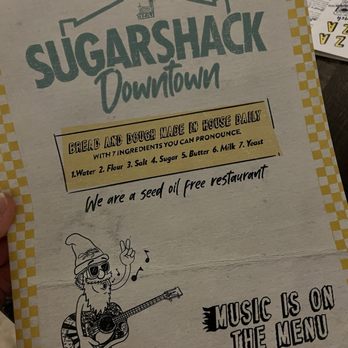 SUGARSHACK
Downtown
BREAD AND DOUGH MADE IN HOUSE DAILY
WITH 7 INGREDIENTS YOU CAN PRONOUNCE.
1.Water 2. Flour 3. Salt 4. Sugar 5. Butter 6. Milk 7. Yeast
We are a seed oil free restaurant
MUSIC IS ON
THE MENU